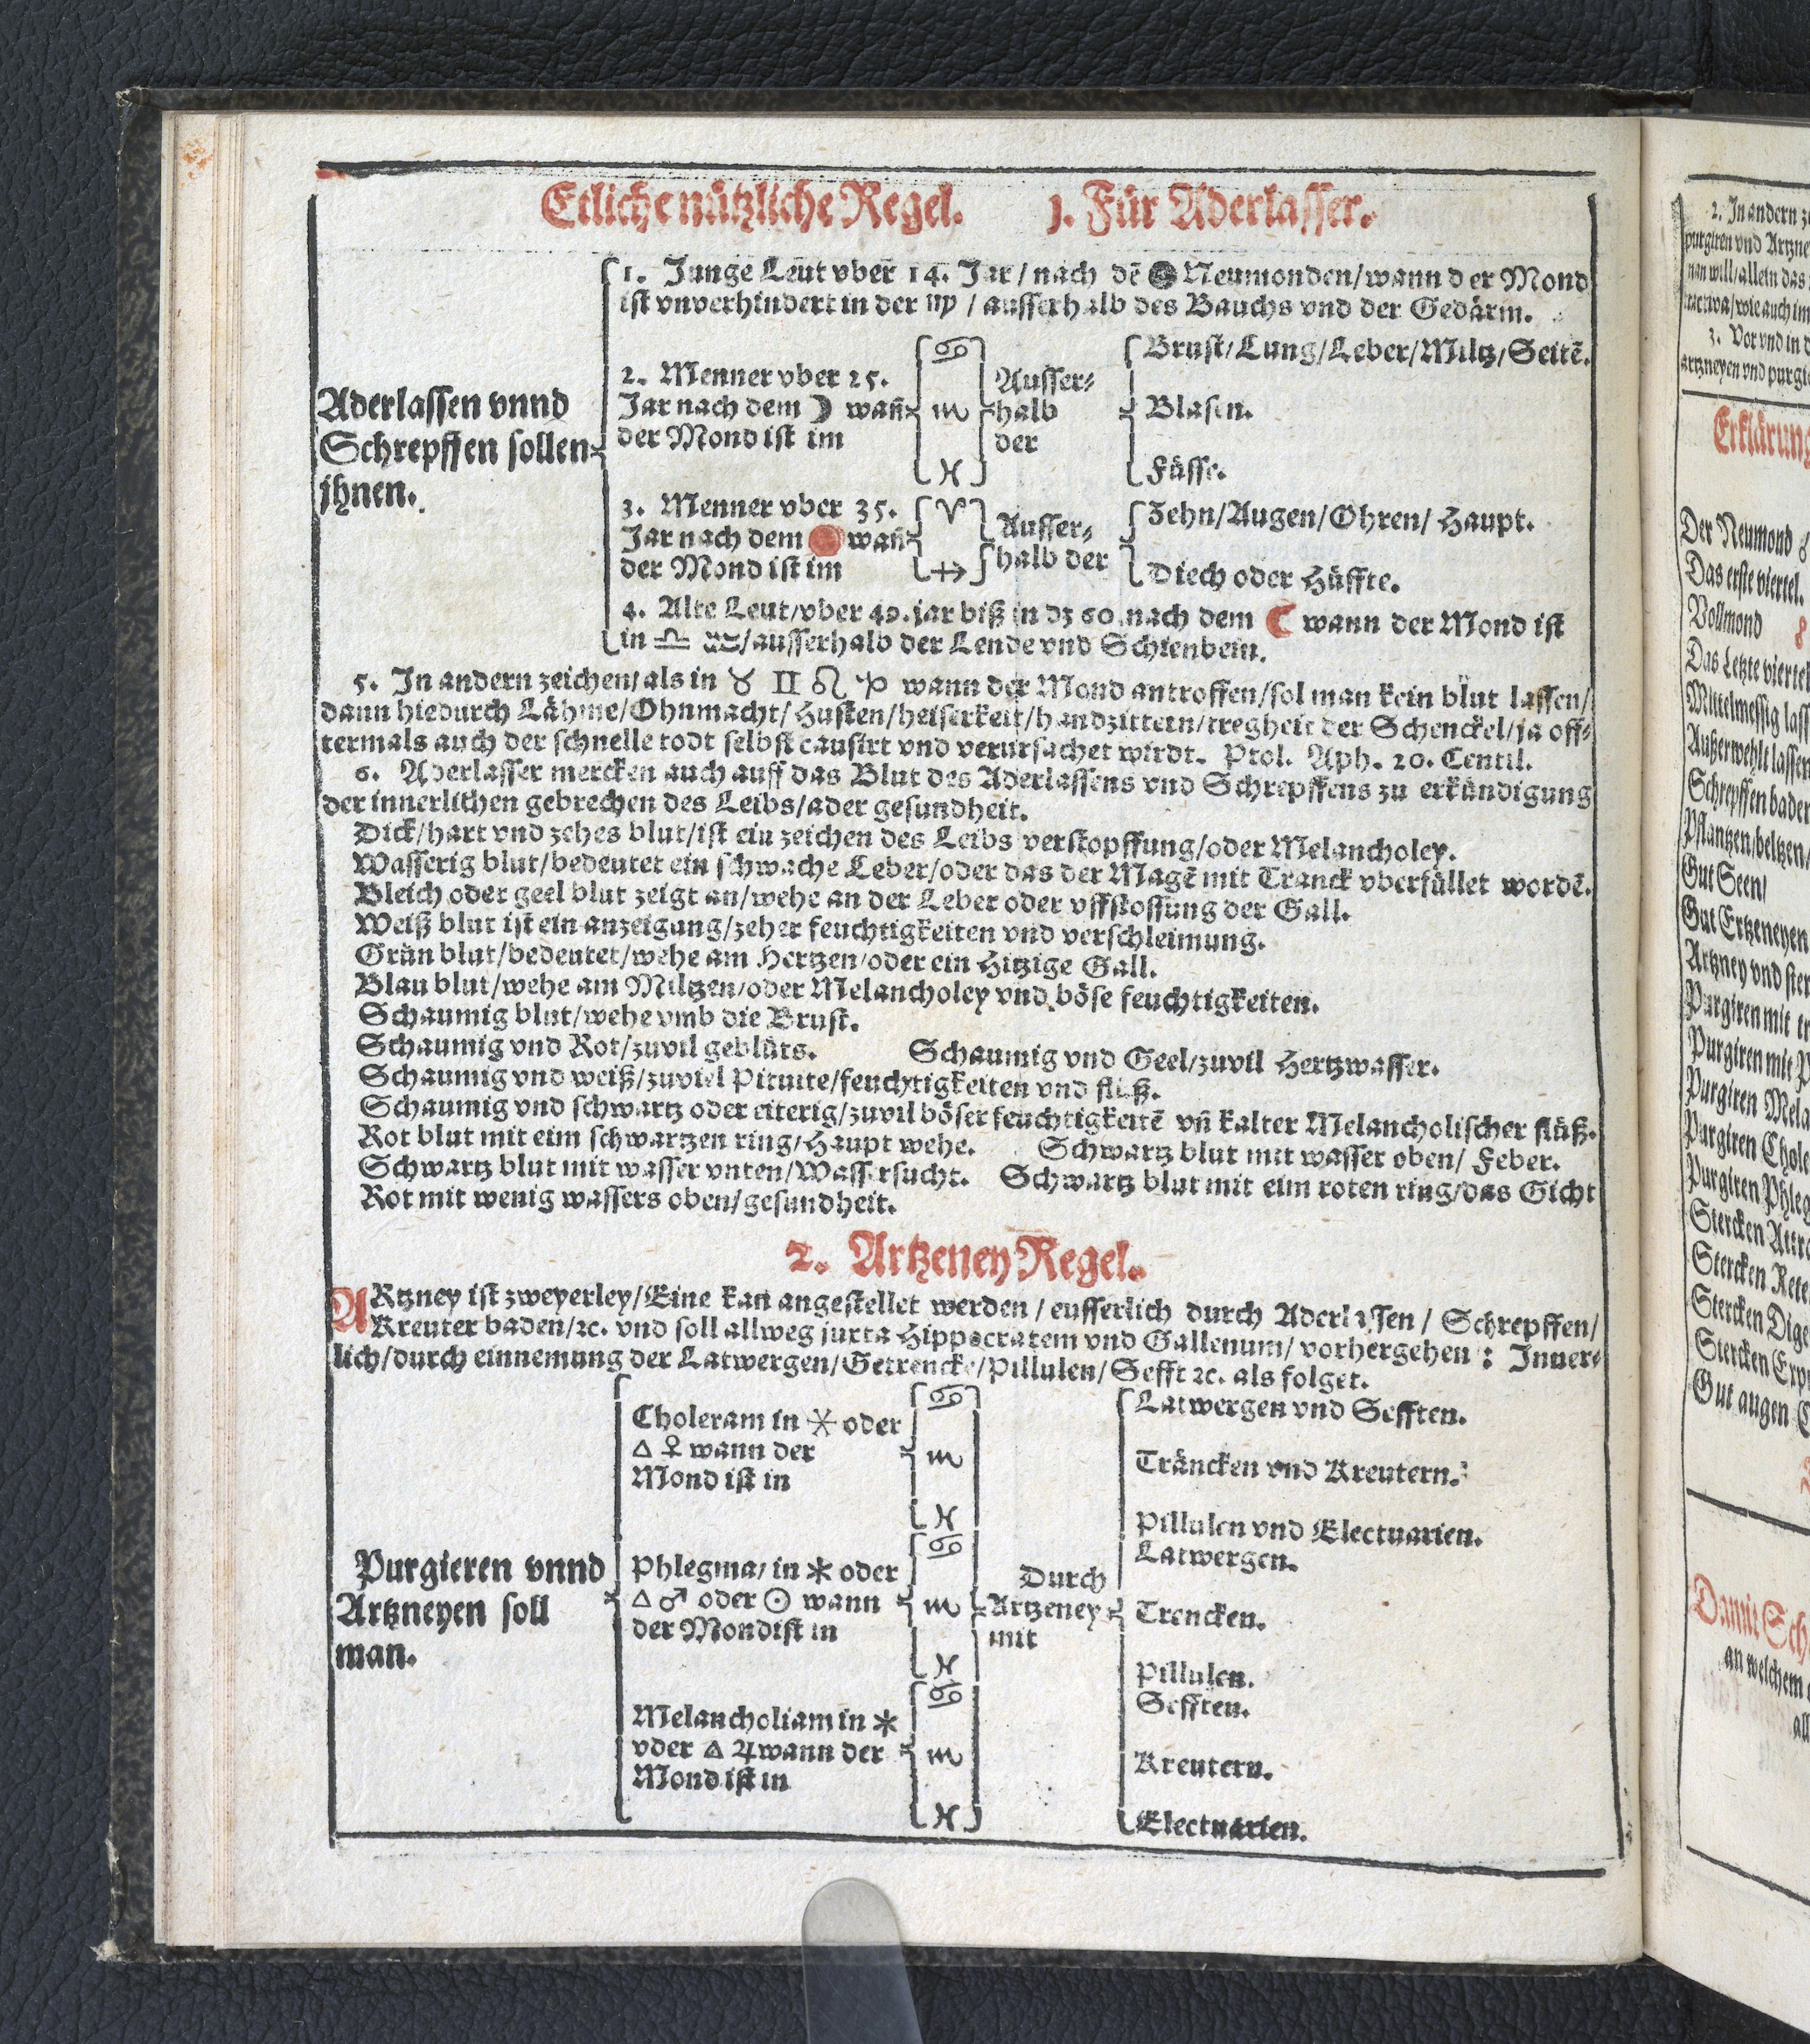 Etliche nützliche Regel. 1. Für Aderlasser.
1. Junge Leut vber 14. Jar / nach dē Neumonden/wann der Mond
ist vnverhindert in der ♍ / ausserhalb des Bauchs vnd der Gedärm.
Aderlassen vnnd
Schrepffen sollen
jhnen.
2. Menner vber 25.
Jar nach dem ☽ wañ
der Mond ist im
♋
♏
♓
Ausser-
halb
der
Brust/Lung/Leber/Miltz/Seitē.
Blasen.
Füsse.
3. Menner vber 35.
Jar nach dem wañ
der Mond ist im
♈
♐
Ausser-
halb der
Zehn/Augen/Ohren/ Haupt.
Diech oder Hüffte.
4. Alte Leut/vber 49. jar biß in dz 60. nach dem ☾ wann der Mond ist
in ♎ ♒/ausserhalb der Lende vnd Schienbein.
5. In andern zeichen/als in ♉ ♊ ♌ ♑ wann der Mond antroffen/sol man kein blut lassen/
dann hiedurch Lähme/Ohnmacht/Husten/heiserkeit/handzittern/tregheit der Schenckel/ja off-
termals auch der schnelle todt selbst causirt vnd verursachet wirdt. Ptol. Aph. 20. Centil.
6. Aderlasser mercken auch auff das Blut des Aderlassens vnd Schrepffens zu erkündigung
der innerlichen gebrechen des Leibs/ader gesundheit.
Dick/hart vnd zehes blut/ist ein zeichen des Leibs verstopffung/oder Melancholey.
Wasserig blut/bedeutet ein schwache Leber/oder das der Magē mit Tranck vberfüllet wordē.
Bleich oder geel blut zeigt an/wehe an der Leber oder vffstossung der Gall.
Weiß blut ist ein anzeigung/zeher feuchtigkeiten vnd verschleimung.
Grün blut/bedeutet/wehe am Hertzen/oder ein Hitzige Gall.
Blau blut/wehe am Miltzen/oder Melancholey vnd böse feuchtigkeiten.
Schaumig blut/wehe vmb die Brust.
Schaumig vnd Rot/zuvil geblüts. Schaumig vnd Geel/zuvil Hertzwasser.
Schaumig vnd weiß/zuviel Pituite/feuchtigkeiten vnd flüß.
Schaumig vnd schwartz oder eiterig/zuvil böser feuchtigkeitē vñ kalter Melancholischer flüß.
Rot blut mit eim schwartzen ring/Haupt wehe. Schwartz blut mit wasser oben/ Feber.
Schwartz blut mit wasser vnten/Wassersucht. Schwartz blut mit eim roten ring/das Gicht
Rot mit wenig wassers oben/gesundheit.
2. Artzeney Regel.
ARtzney ist zweyerley/Eine kan angestellet werden / eusserlich durch Aderlassen / Schrepffen/
Kreuter baden/ꝛc. vnd soll allweg juxta Hippocratem vnd Gallenum/ vorhergehen : Inner-
lich/durch einnemung der Latwergen/Getrencke/Pillulen/Sefft ꝛc. als folget.
Purgieren vnnd
Artzneyen soll
man.
Choleram in ⚹ oder
△ ♀ wann der
Mond ist in
♋
♏
♓
Phlegma/ in ⚹ oder
△ ♂ oder ☉ wann
der Mond ist in
♋
♏
♓
Melancholiam in ⚹
vder △ ♃ wann der
Mond ist in
♋
♏
♓
Durch
Artzeney
mit
Latwergen vnd Sefften.
Träncken vnd Kreutern.
Pillulen vnd Electuarien.
Latwergen.
Trencken.
Pillulen.
Sefften.
Kreutern.
Electuarien.
2. In andern
purgiren vnd
nan will/allein das
wie auch im
3. Vor vnd in
artzneyen vnd
Erklärung
Der Neumond
Das erste viertel.
Vollmond
Das Letzte viertel
Mittelmessig
Außerwehlt lassen
Schrepffen baden
Pflantzen/beltzen/
Gut Seen/
Gut Ertzeneyen
Artzney vnd
Purgiren mit
Purgiren mit
Purgiren
Purgiren
Purgiren
Stercken
Stercken
Stercken
Stercken
Gut augen
Damit
an welchem